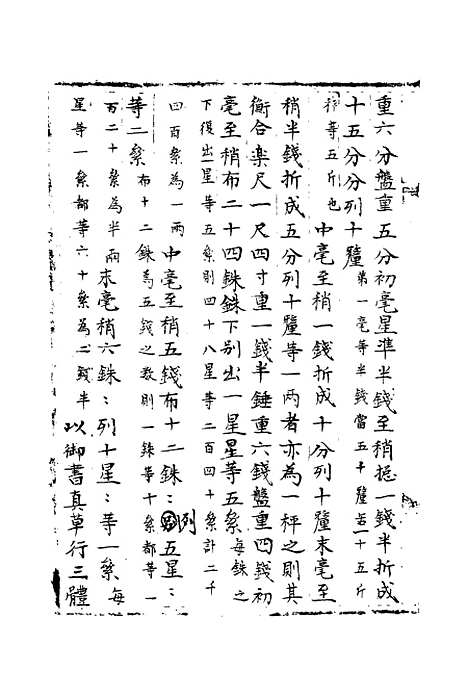 重六分盤重五分初毫星準半錢至稍揔一錢半折成
十五分分列十釐第一毫等半錢當五十釐若一十五斤
稱等五斤也中毫至稍一錢折成十分列十釐末毫至
稍半錢折成五分列十釐等一兩者亦為一秤之則其
衡合樂尺一尺四寸重一錢半錘重六錢盤重四錢初
毫至稍布二十四銖銖下別出一星星等五絫每銖之
下復出一星等五絫則四十八星等二百四十絫計二千
四百絫為一兩中毫至稍五錢布十二銖:列五星:
等二絫布十二銖為五錢之數則一銖等十絫都等一
百二十絫為半兩末毫稍六銖:列十星:等一絫每
星等一絫都等六十絫為二錢半以御書真草行三體